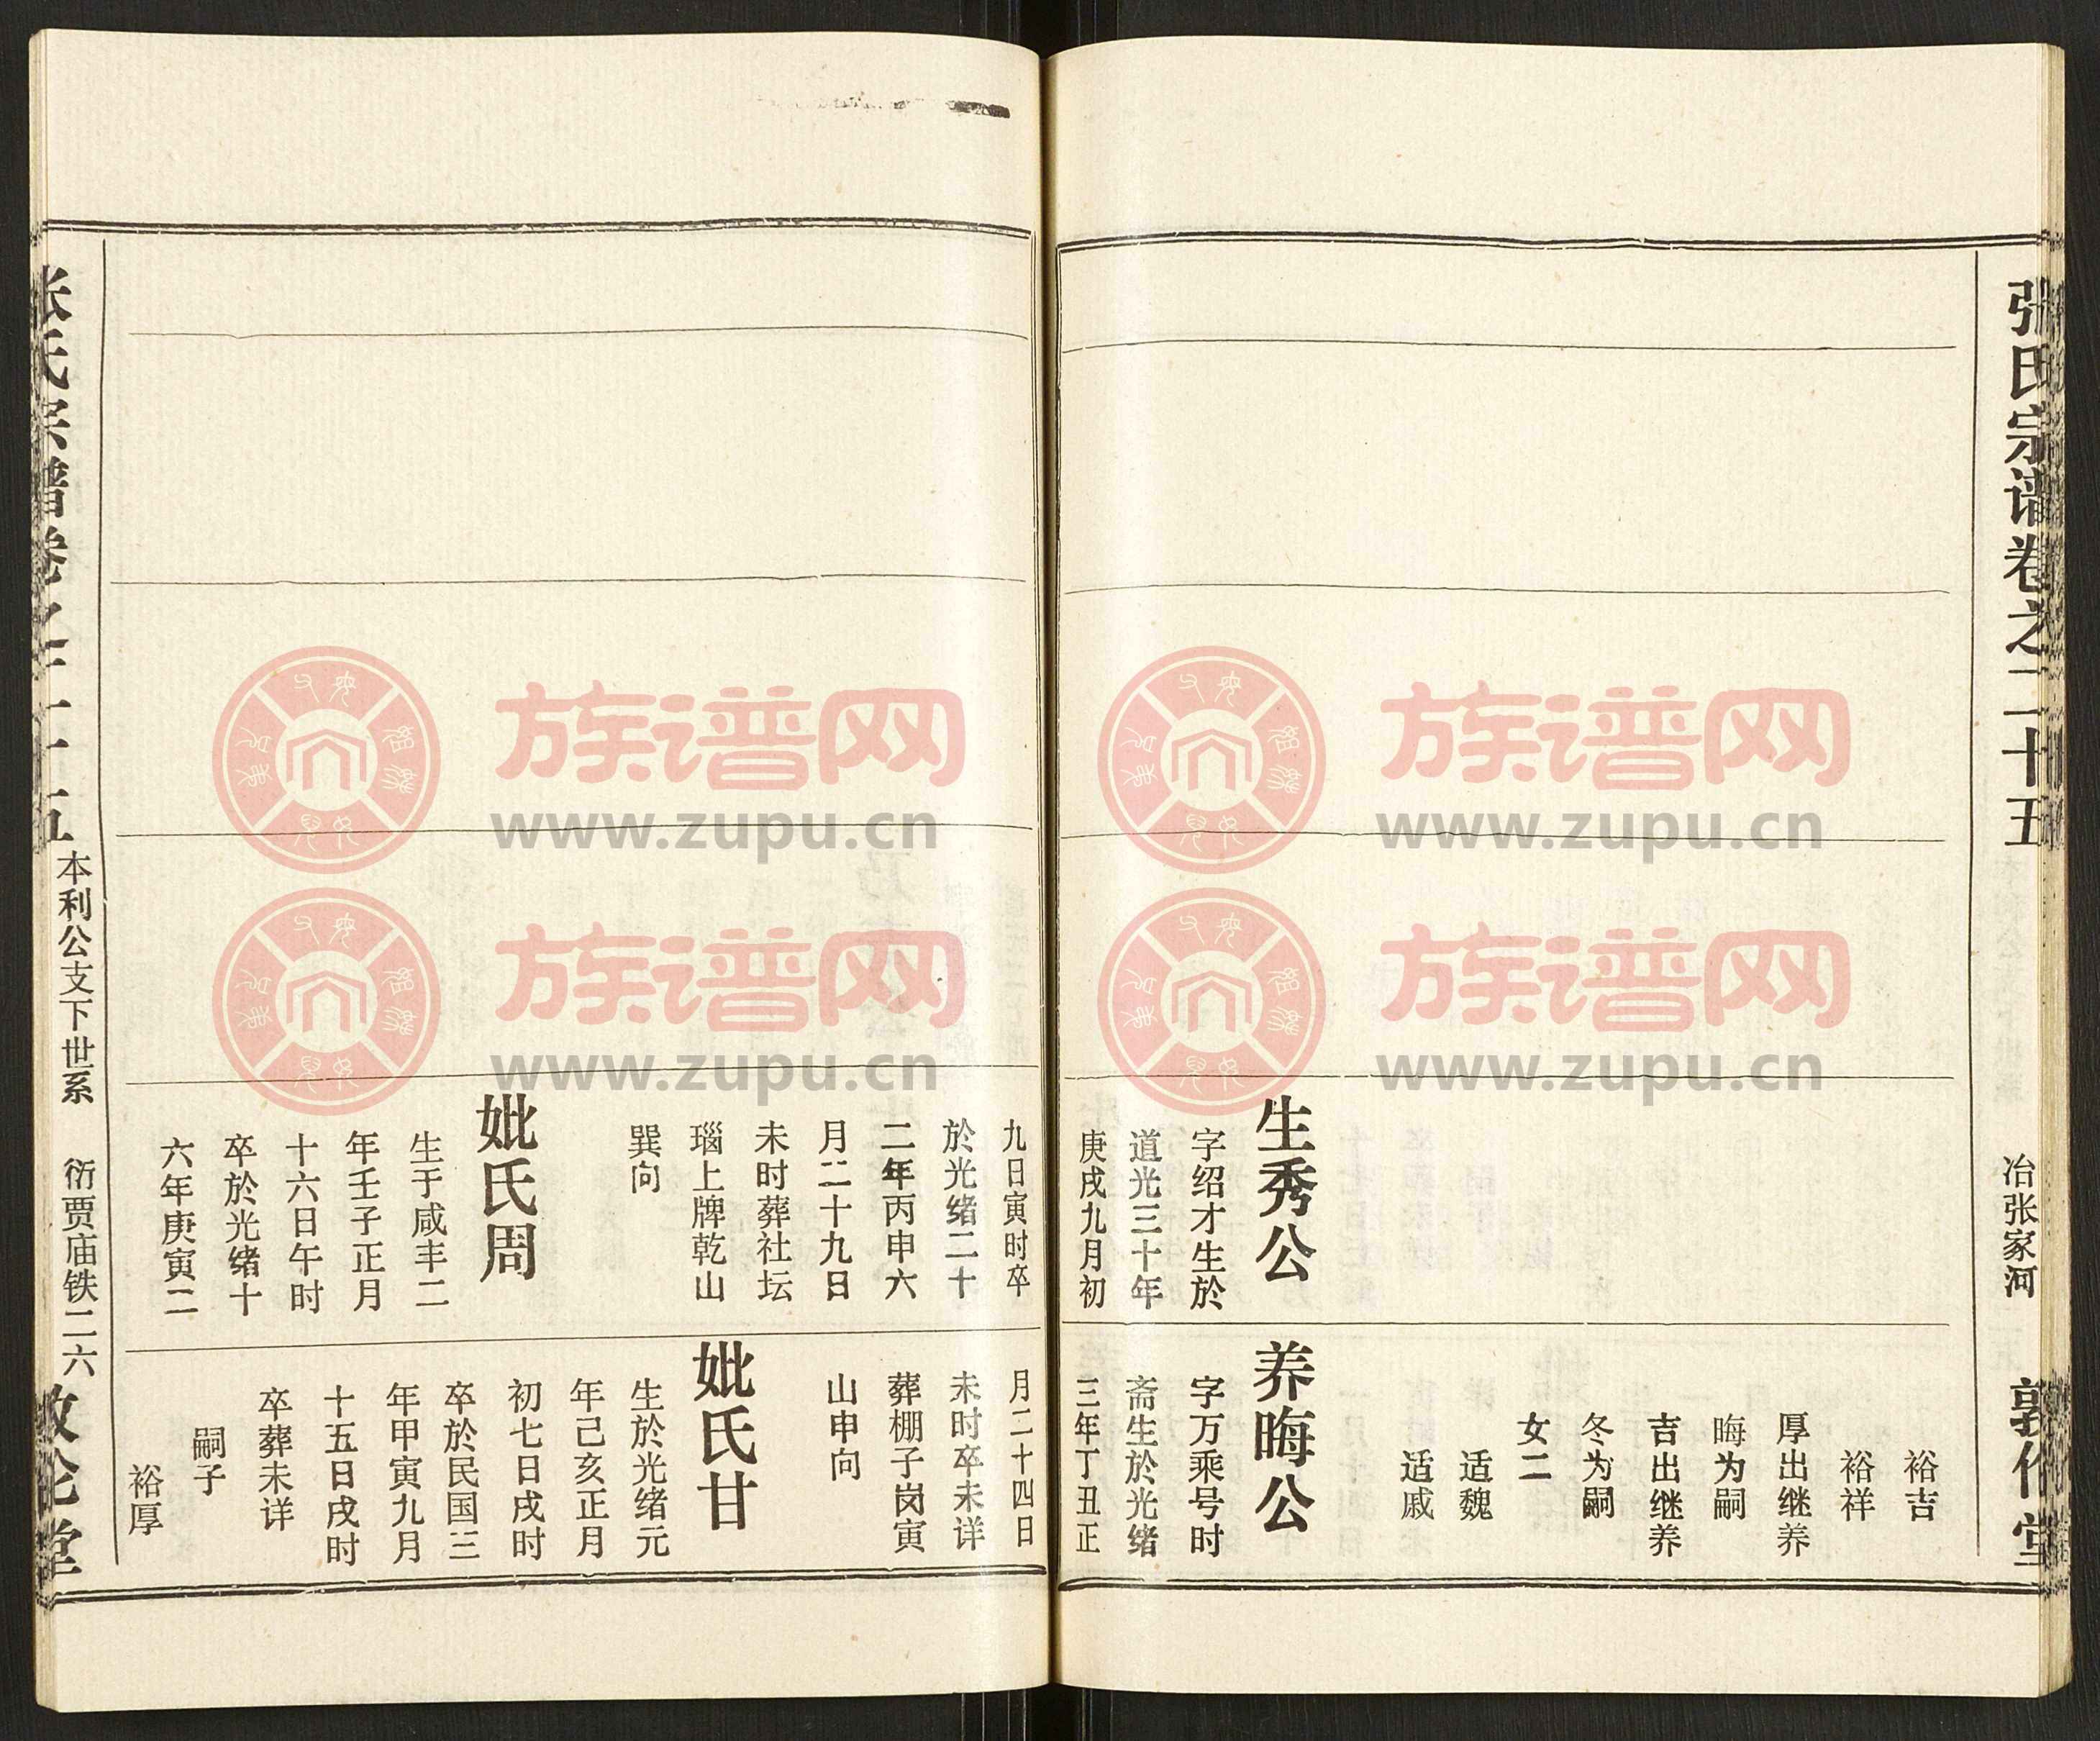 张氏宗谱卷之二十五
冶张家河
敦伦堂
生秀公
字绍才生於
道光三十年
庚戌九月初
裕吉
裕祥
厚出继养
晦为嗣
吉出继养
冬为嗣
女二
适魏
适戚
养晦公
字万乘号时
斋生於光绪
三年丁丑正
九日寅时卒
於光绪二十
二年丙申六
月二十九日
未时葬社坛
瑙上牌乾山
巽向
妣氏周
生于咸丰二
年壬子正月
十六日午时
卒於光绪十
六年庚寅二
月二十四日
未时卒未详
葬棚子岗寅
山申向
妣氏甘
生於光绪元
年己亥正月
初七日戌时
卒於民国三
年甲寅九月
十五日戌时
卒葬未详
嗣子
裕厚
张氏宗谱卷之二十五
本利公支下世系
衍贾庙铁二六
敦伦堂
族谱网
www.zupu.cn
族谱网
www.zupu.cn
族谱网
www.zupu.cn
族谱网
www.zupu.cn